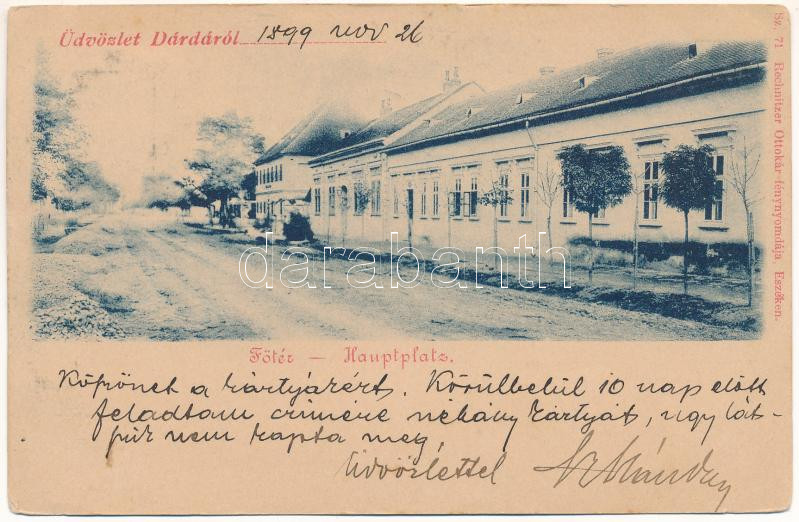 Üdvözlet Dárdáról 1899 nov 26
Sz. 71 Rechnitzer Ottokár fénynyomdája, Eszéken.
darabanth
Főtér — Hauptplatz.
Köszönet a kártyáért. Körülbelül 10 nap előtt
feladtam címére néhány kártyát, úgy lát-
szik nem kapta meg.
Üdvözlettel